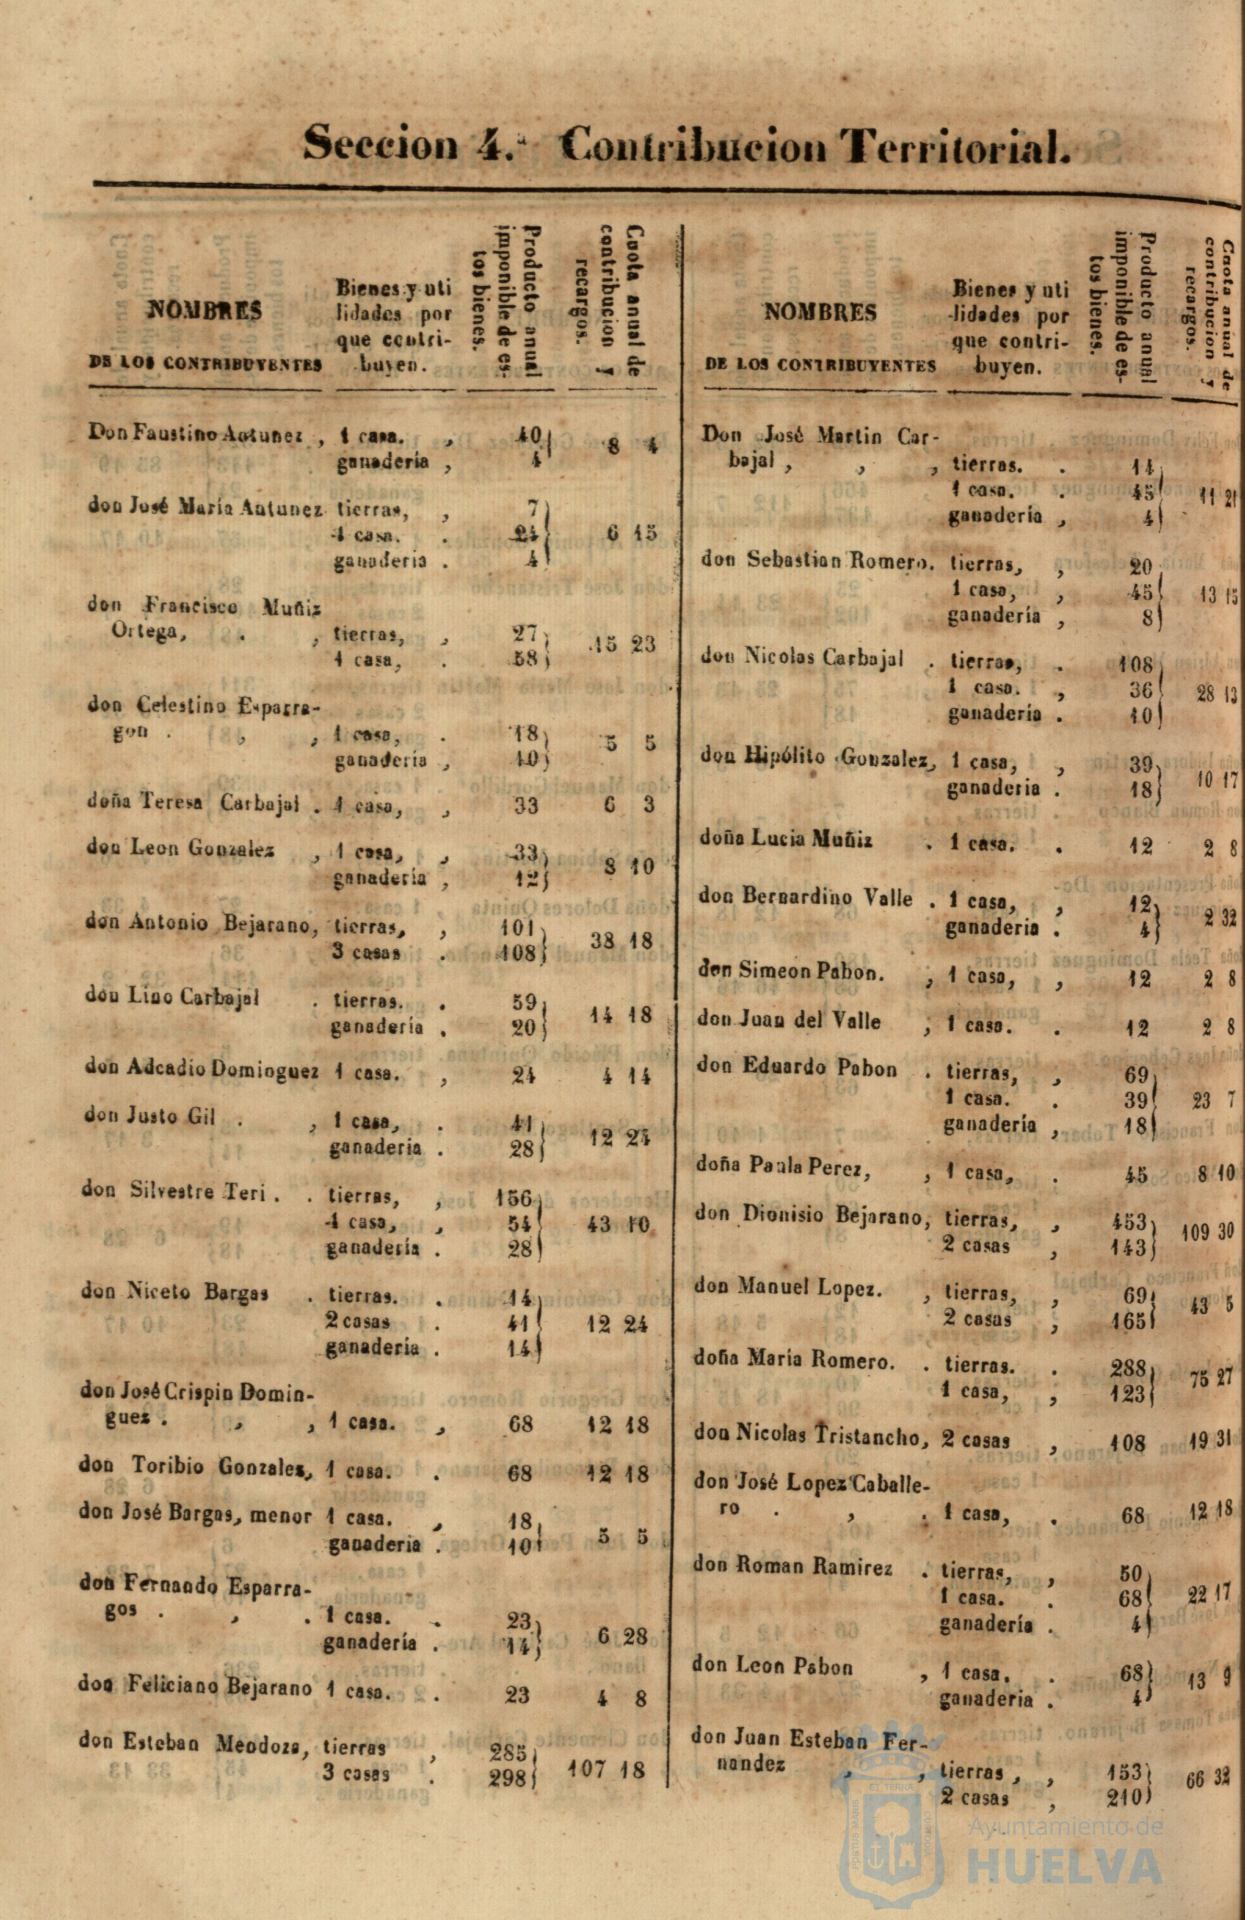 Seccion 4.ª Contribucion Territorial.
NOMBRES
DE LOS CONTRIBUYENTES
Bienes y uti
lidades por
que contri-
buyen.
Producto anual
imponible de es-
tos bienes.
Cuota anual de
contribucion y
recargos.
Don Faustino Antunez , 1 casa. , 40
ganadería , 4 8 4
don José María Antunez tierras, , 7
1 casa. . 24 6 15
ganaderia . 4
don Francisco Muñiz
Ortega, . , tierras, , 27
1 casa, . 58 15 23
don Celestino Esparra-
gon . , , 1 casa, . 18
ganadería , 10 5 5
doña Teresa Carbajal . 1 casa, , 33 6 3
don Leon Gonzalez , 1 casa, , 33
ganadería , 12 8 10
don Antonio Bejarano, tierras, , 101
3 casas . 108 38 18
don Lino Carbajal . tierras. . 59
ganadería . 20 14 18
don Adcadio Dominguez 1 casa. , 24 4 14
don Justo Gil . , 1 casa, . 41
ganaderia . 28 12 24
don Silvestre Teri . . tierras, , 156
1 casa, , 54 43 10
ganadería . 28
don Niceto Bargas . tierras. . 14
2 casas . 41 12 24
ganadería . 14
don José Crispin Domin-
guez . , , 1 casa. , 68 12 18
don Toribio Gonzalez, 1 casa. . 68 12 18
don José Bargas, menor 1 casa. , 18
ganaderia . 10 5 5
don Fernando Esparra-
gos . , . 1 casa. . 23
ganadería . 14 6 28
don Feliciano Bejarano 1 casa. . 23 4 8
don Esteban Mendoza, tierras , 285
3 casas . 298 107 18
NOMBRES
DE LOS CONTRIBUYENTES
Bienes y uti
lidades por
que contri-
buyen.
Producto anual
imponible de es-
tos bienes.
Cuota anual de
contribucion y
recargos.
Don José Martin Car-
bajal , , , tierras. . 14
1 casa. . 45 11 21
ganadería , 4
don Sebastian Romero. tierras, , 20
1 casa, , 45 13 15
ganadería , 8
don Nicolas Carbajal . tierras, . 108
1 casa. , 36 28 13
ganaderia . 10
don Hipólito Gonzalez, 1 casa, , 39
ganaderia . 18 10 17
doña Lucia Muñiz . 1 casa. . 12 2 8
don Bernardino Valle . 1 casa, , 12
ganaderia . 4 2 32
don Simeon Pabon. , 1 casa, , 12 2 8
don Juan del Valle , 1 casa. . 12 2 8
don Eduardo Pabon . tierras, , 69
1 casa. . 39 23 7
ganadería , 18
doña Paula Perez, , 1 casa, . 45 8 10
don Dionisio Bejarano, tierras, , 453
2 casas , 143 109 30
don Manuel Lopez. , tierras, , 69
2 casas , 165 43 5
doña María Romero. . tierras. . 288
1 casa, , 123 75 27
don Nicolas Tristancho, 2 casas , 108 19 31
don José Lopez Caballe-
ro . , . 1 casa, . 68 12 18
don Roman Ramirez . tierras, , 50
1 casa. . 68 22 17
ganadería . 4
don Leon Pabon , 1 casa. . 68
ganaderia . 4 13 9
don Juan Esteban Fer-
nandez , , tierras , , 153
2 casas , 210 66 32
Ayuntamiento de
HUELVA